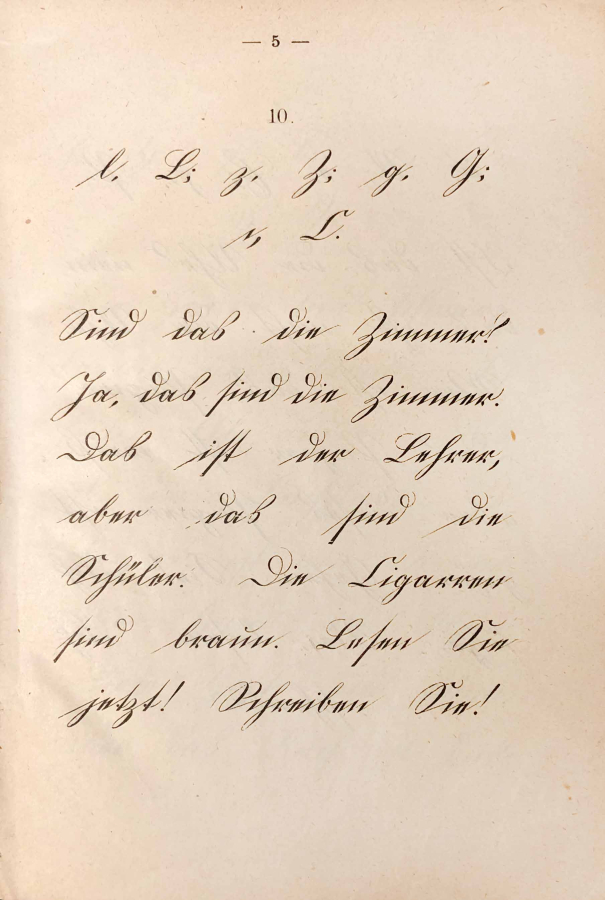 — 5 —
10.
l. L; z. Z; g. G;
c, C.
Sind das die Zimmer?
Ja, das sind die Zimmer.
Das ist der Lehrer,
aber das sind die
Schüler. Die Cigarren
sind braun. Lesen Sie
jetzt! Schreiben Sie!